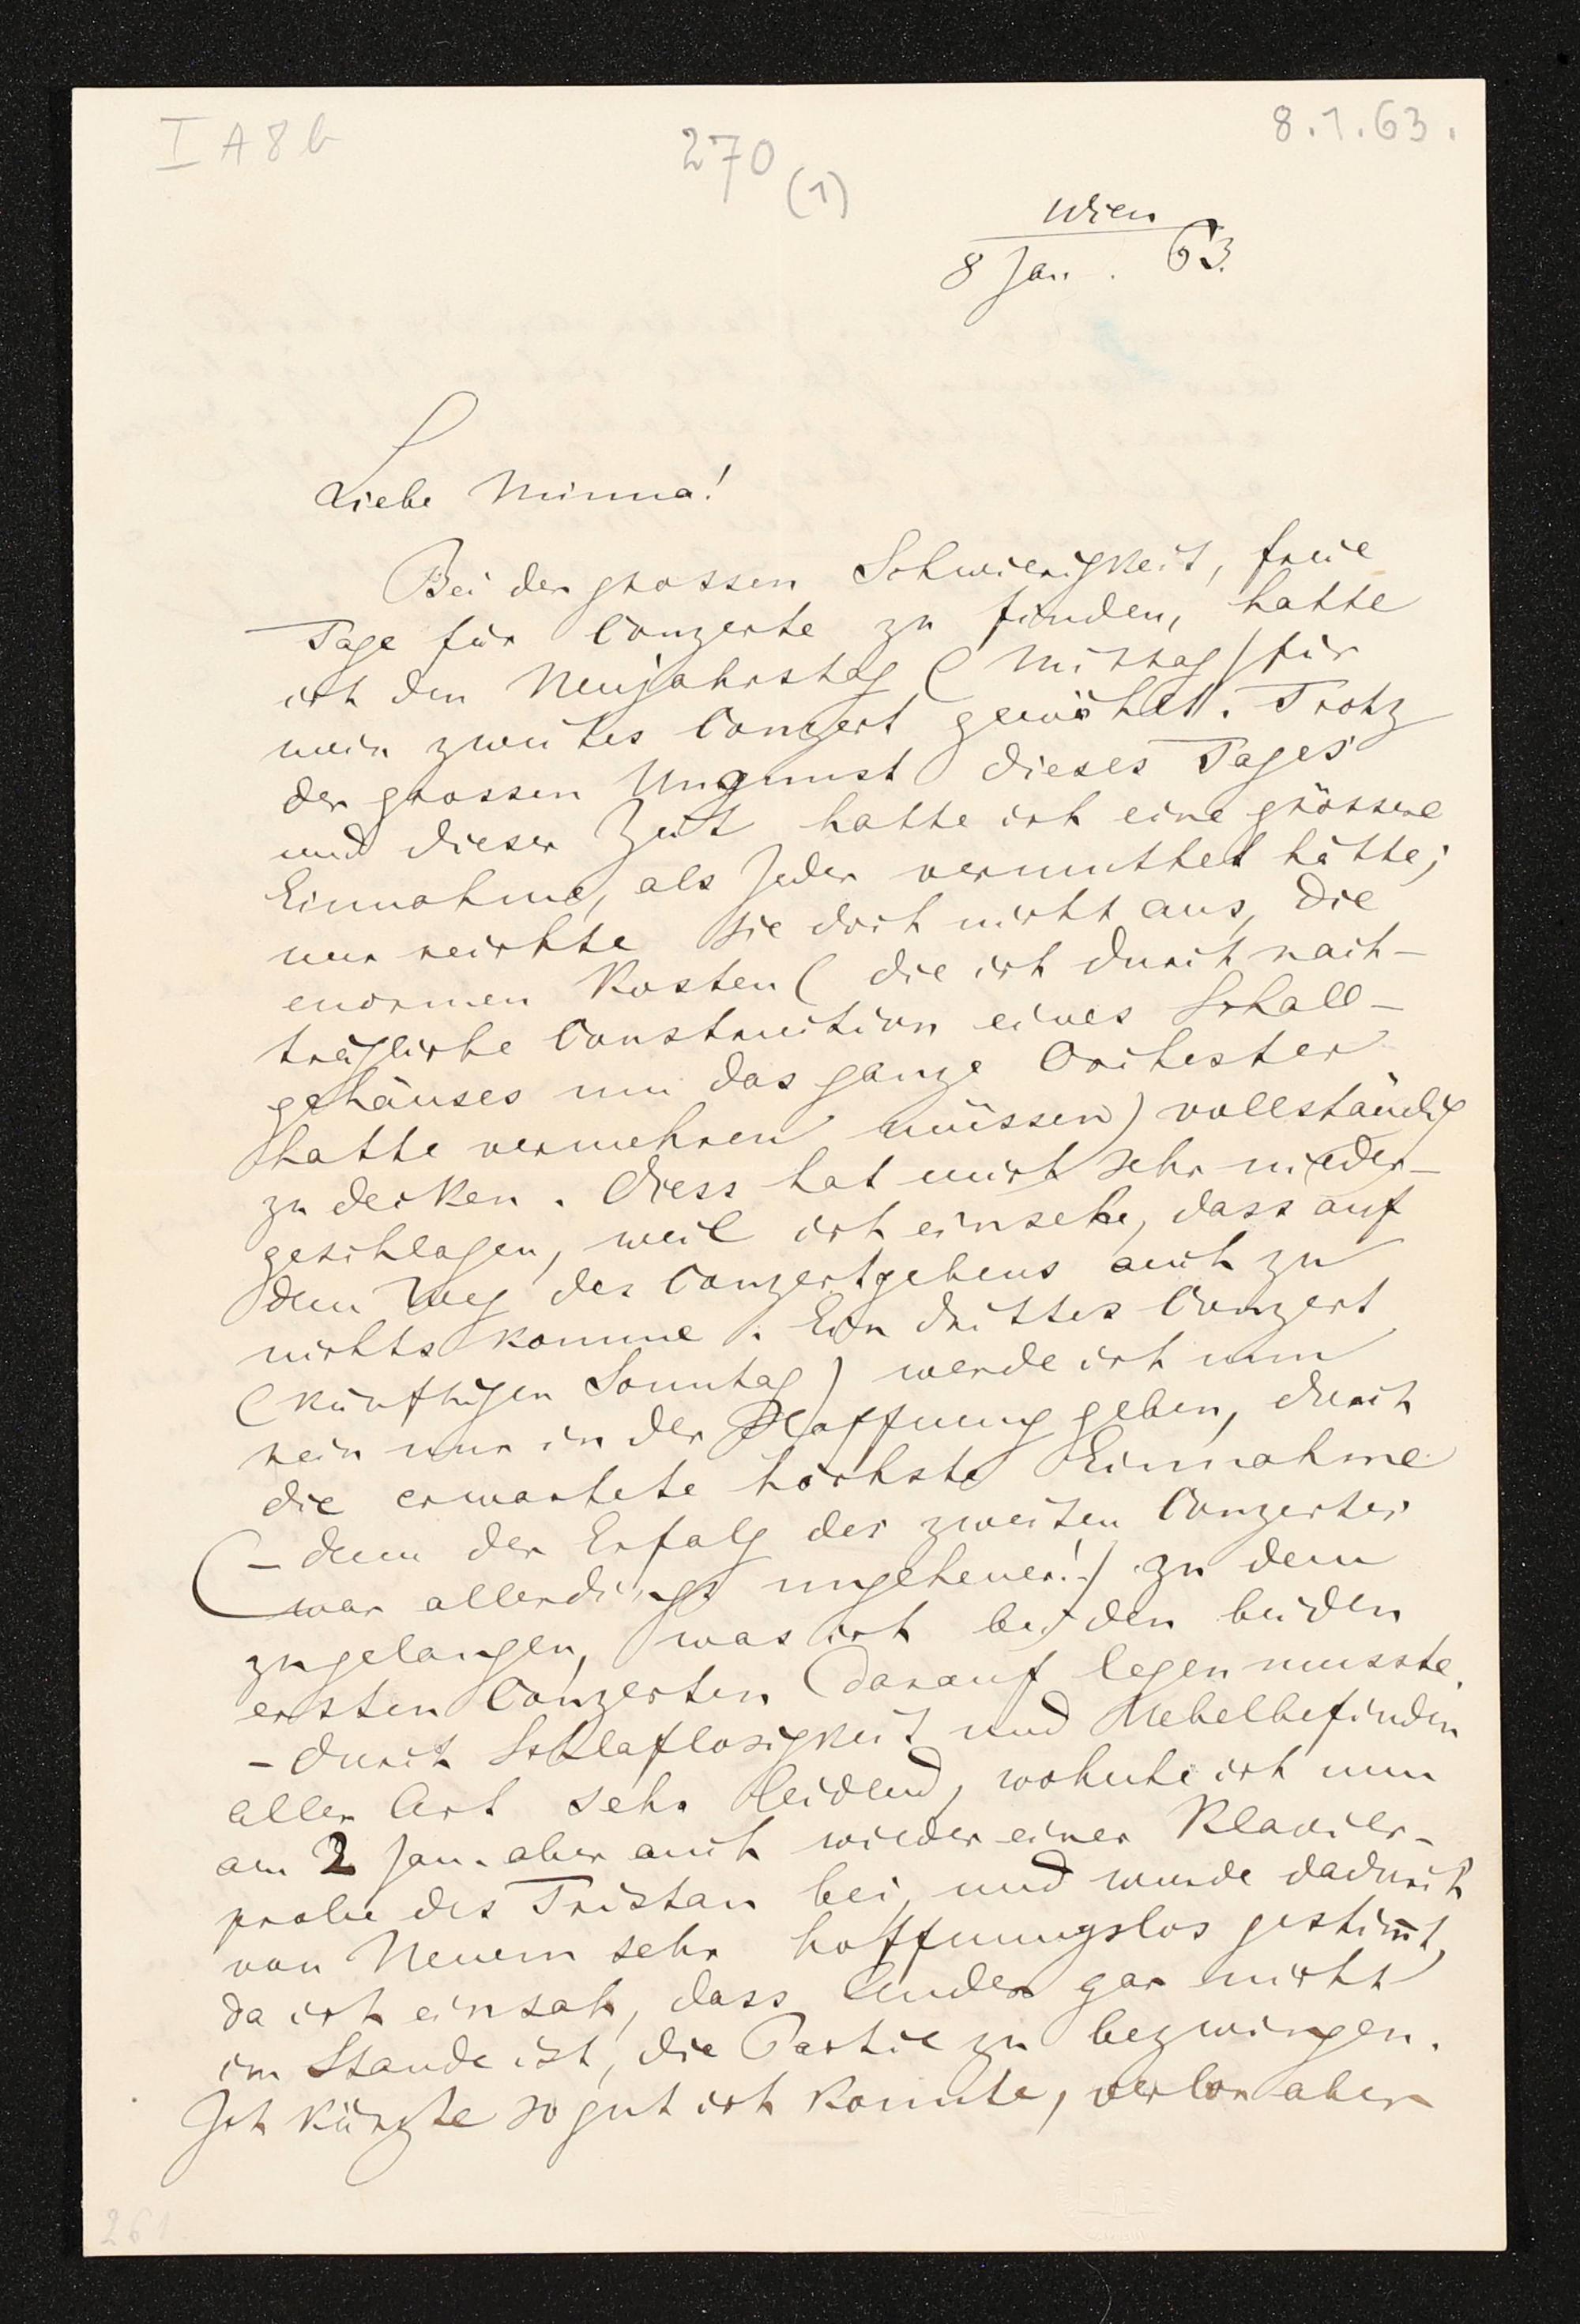 I A 8 b
270 (1)
8.1.63.
Wien
8 Jan. 63.
Liebe Minna!
Bei der grossen Schwierigkeit, freie
Tage für Conzerte zu finden, hatte
ich den Neujahrstag (Mittag) für
mein zweites Conzert gewählt. Trotz
der grossen Ungunst dieses Tages
und dieser Zeit hatte ich eine grössere
Einnahme, als Jeder vermuthet hätte;
nur reichte sie doch nicht aus, die
enormen Kosten (die ich durch nach-
trägliche Construction eines Schall-
gehäuses um das ganze Orchester
hatte vermehren müssen) vollständig
zu decken. Diess hat mich sehr nieder-
geschlagen, weil ich einsehe, dass auf
dem Weg des Conzertgebens auch zu
nichts komme. Ein drittes Conzert
(künftigen Sonntag) werde ich nun
rein nur in der Hoffnung geben, durch
die erwartete höchste Einnahme
(– denn der Erfolg des zweiten Conzertes
war allerdings ungeheuer! –) zu dem
zugelangen, was ich bei den beiden
ersten Conzerten darauf legen musste.
– Durch Schlaflosigkeit und Uebelbefinden
aller Art sehr leidend, wohnte ich nun
am 2 Jan. aber auch wieder einer Klavier-
probe des Tristan bei, und wurde dadurch
von Neuem sehr hoffnungslos gestim̅t,
da ich einsah, dass Ander gar nicht
im Stande ist, die Partie zu bezwingen.
Ich kürzte so gut ich konnte, verlor aber
261